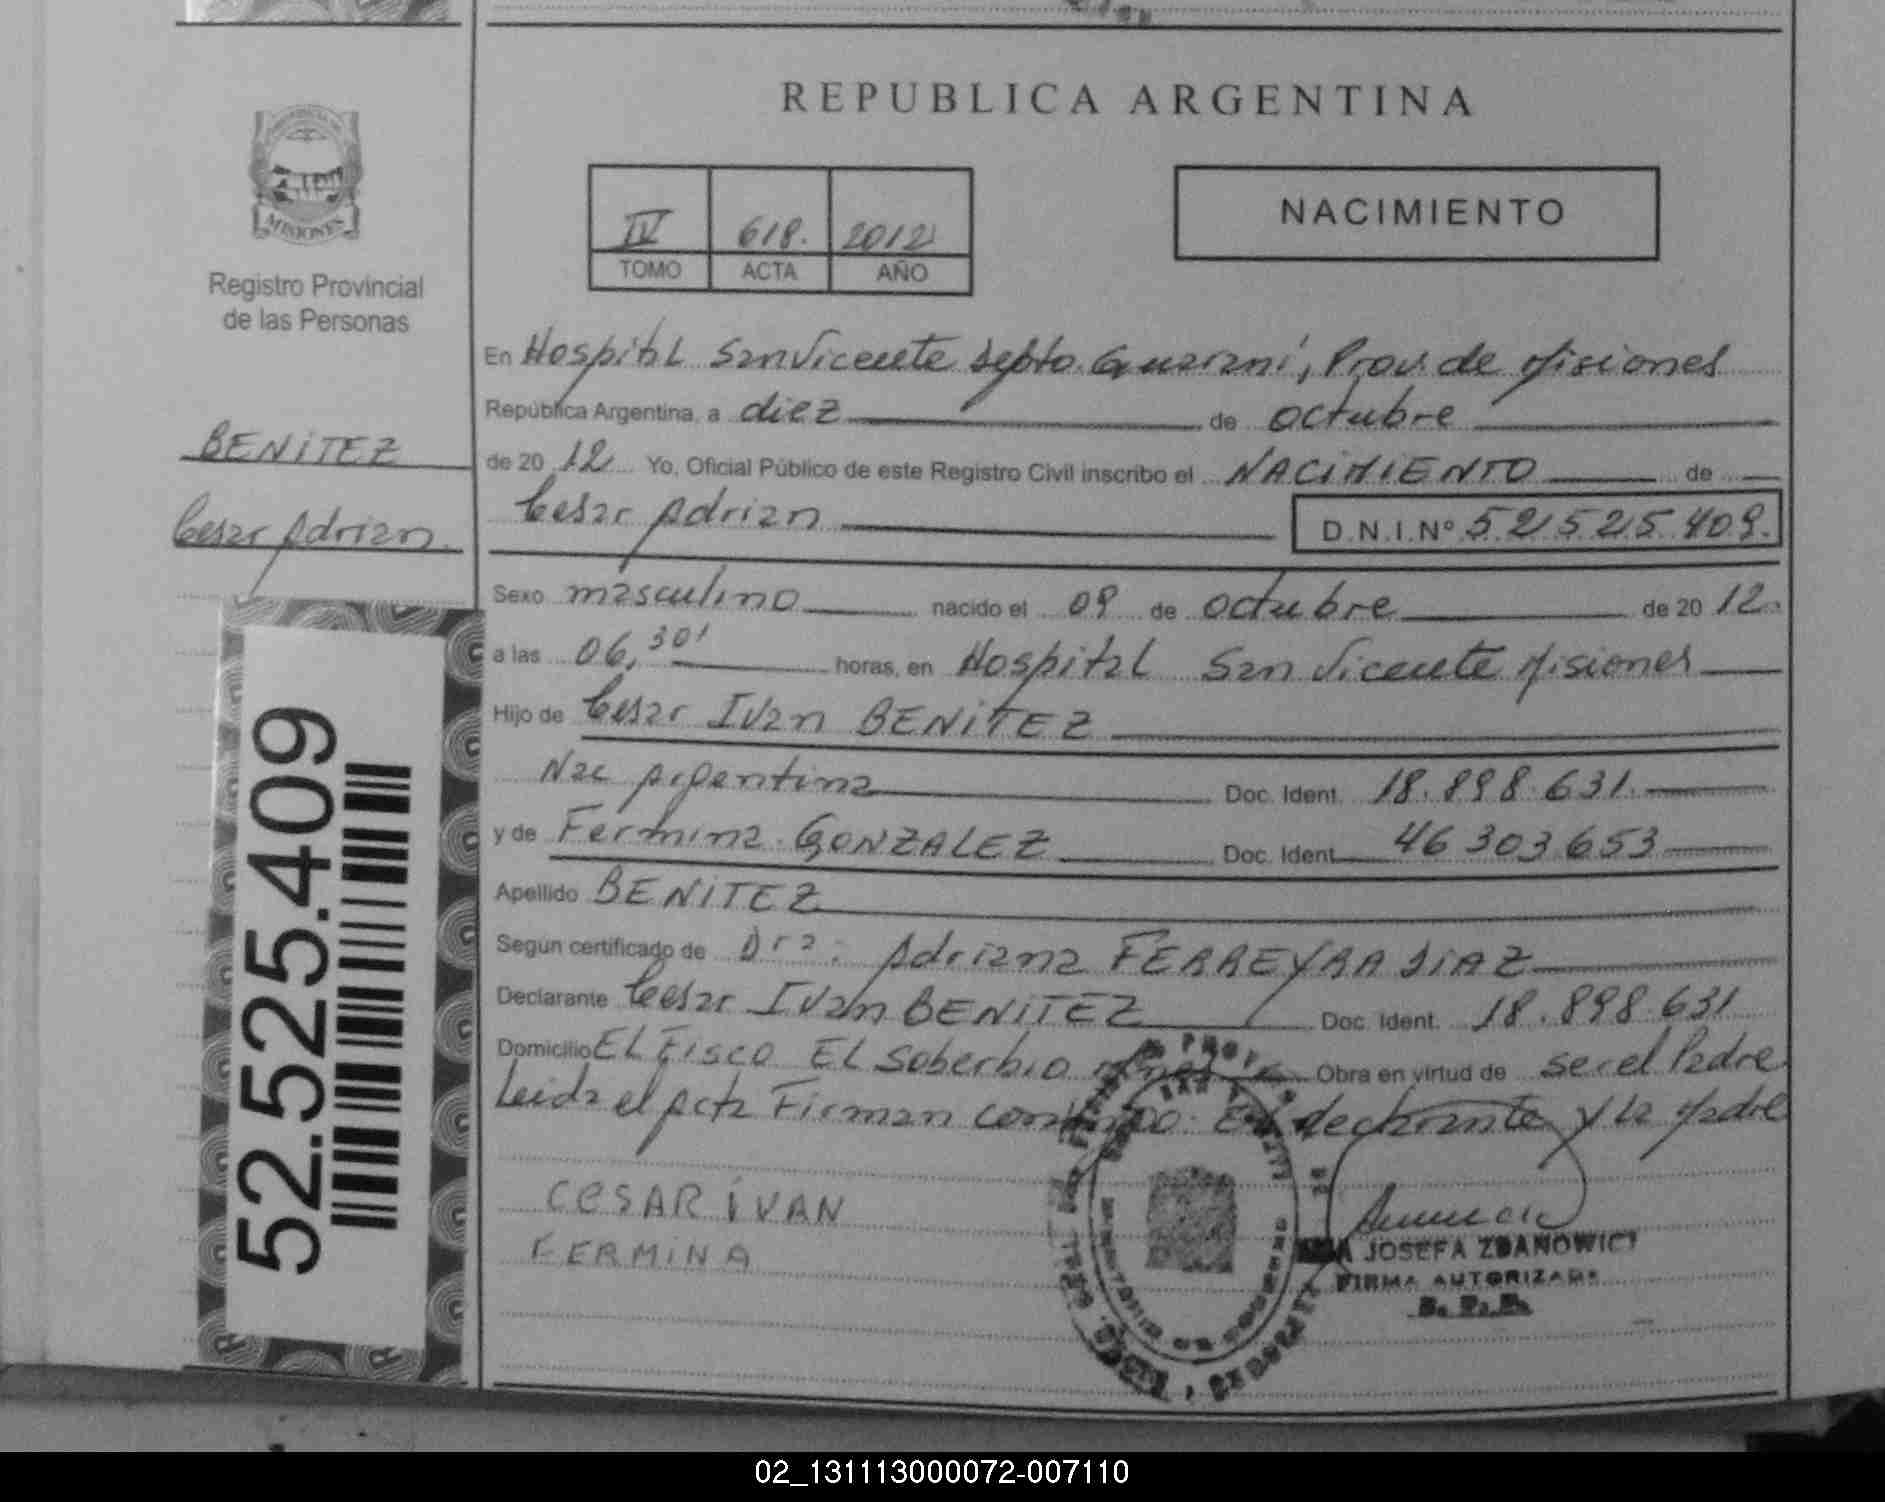 REPUBLICA ARGENTINA
MISIONES
Registro Provincial
de las Personas
IV 618. 2012
TOMO ACTA AÑO
NACIMIENTO
BENITEZ
Cesar Adrian.
52.525.409
En Hospital San Vicente Depto. Guarani, Prov. de Misiones
República Argentina, a diez de octubre
de 20 12 Yo, Oficial Público de este Registro Civil inscribo el NACIMIENTO de
Cesar Adrian D.N.I.Nº 52525409.
Sexo masculino nacido el 09 de octubre de 20 12
a las 06,30' horas, en Hospital San Vicente Misiones
Hijo de Cesar Ivan BENITEZ
Nac Argentina Doc. Ident. 18.898.631.
y de Fermina GONZALEZ Doc. Ident. 46 303 653
Apellido BENITEZ
Según certificado de Dra. Adriana FERREYRA DIAZ
Declarante Cesar Ivan BENITEZ Doc. Ident. 18.898.631
Domicilio EL Fisco EL Soberbio Obra en virtud de ser el Padre
Leida el Acta Firman conmigo El declarante y la Madre
CESAR IVAN
FERMINA
JOSEFA ZDANOWICZ
FIRMA AUTORIZADA
02_131113000072-007110